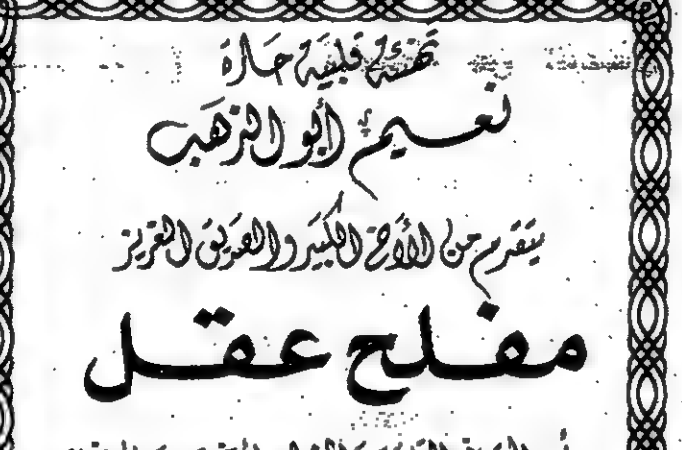 تهنئة قلبية حارة
نعيم أبو الذهب
يتقدم من الأخ الكبير والصديق العزيز
مفلح عقل